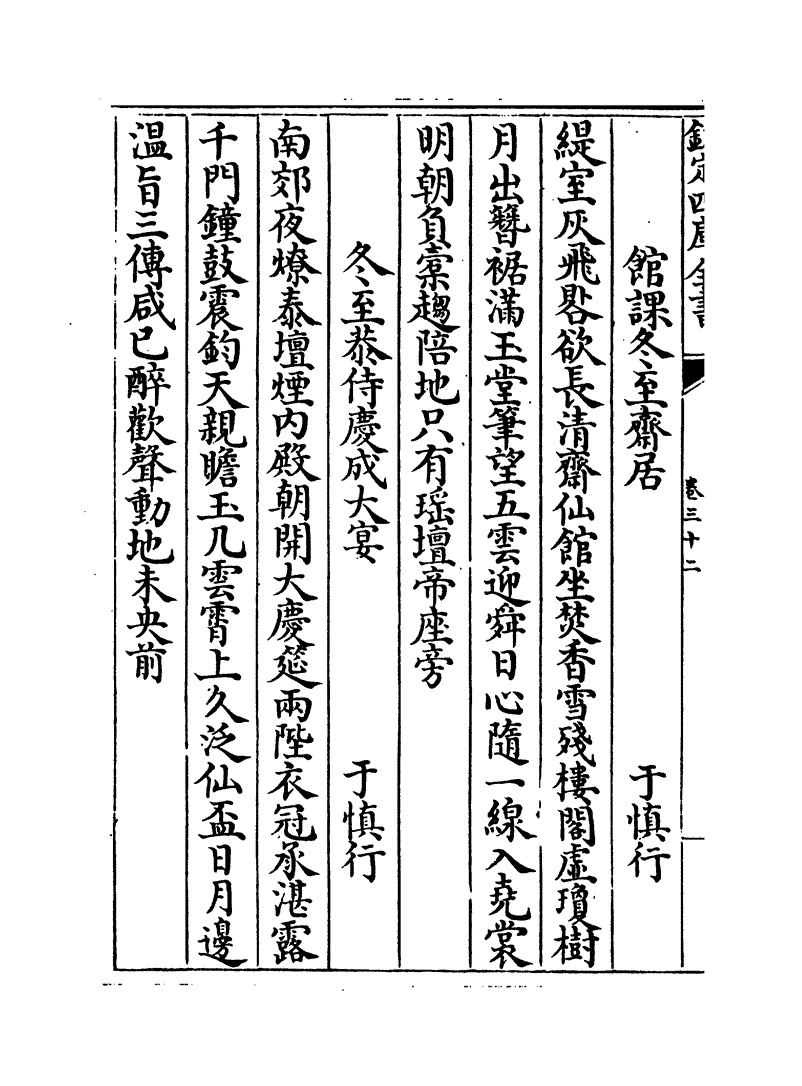 欽定四庫全書
卷三十二
館課冬至齋居 于慎行
緹室灰飛晷欲長清齋仙館坐焚香雪殘樓閣虛瓊樹
月出簪裾滿玉堂筆望五雲迎舜日心隨一線入堯裳
明朝負橐趨陪地只有瑶壇帝座旁
冬至恭侍慶成大宴 于慎行
南郊夜燎泰壇煙内殿朝開大慶筵兩陛衣冠承湛露
千門鐘鼓震鈞天親瞻玉几雲霄上久泛仙盃日月邊
温旨三傳咸已醉歡聲動地未央前